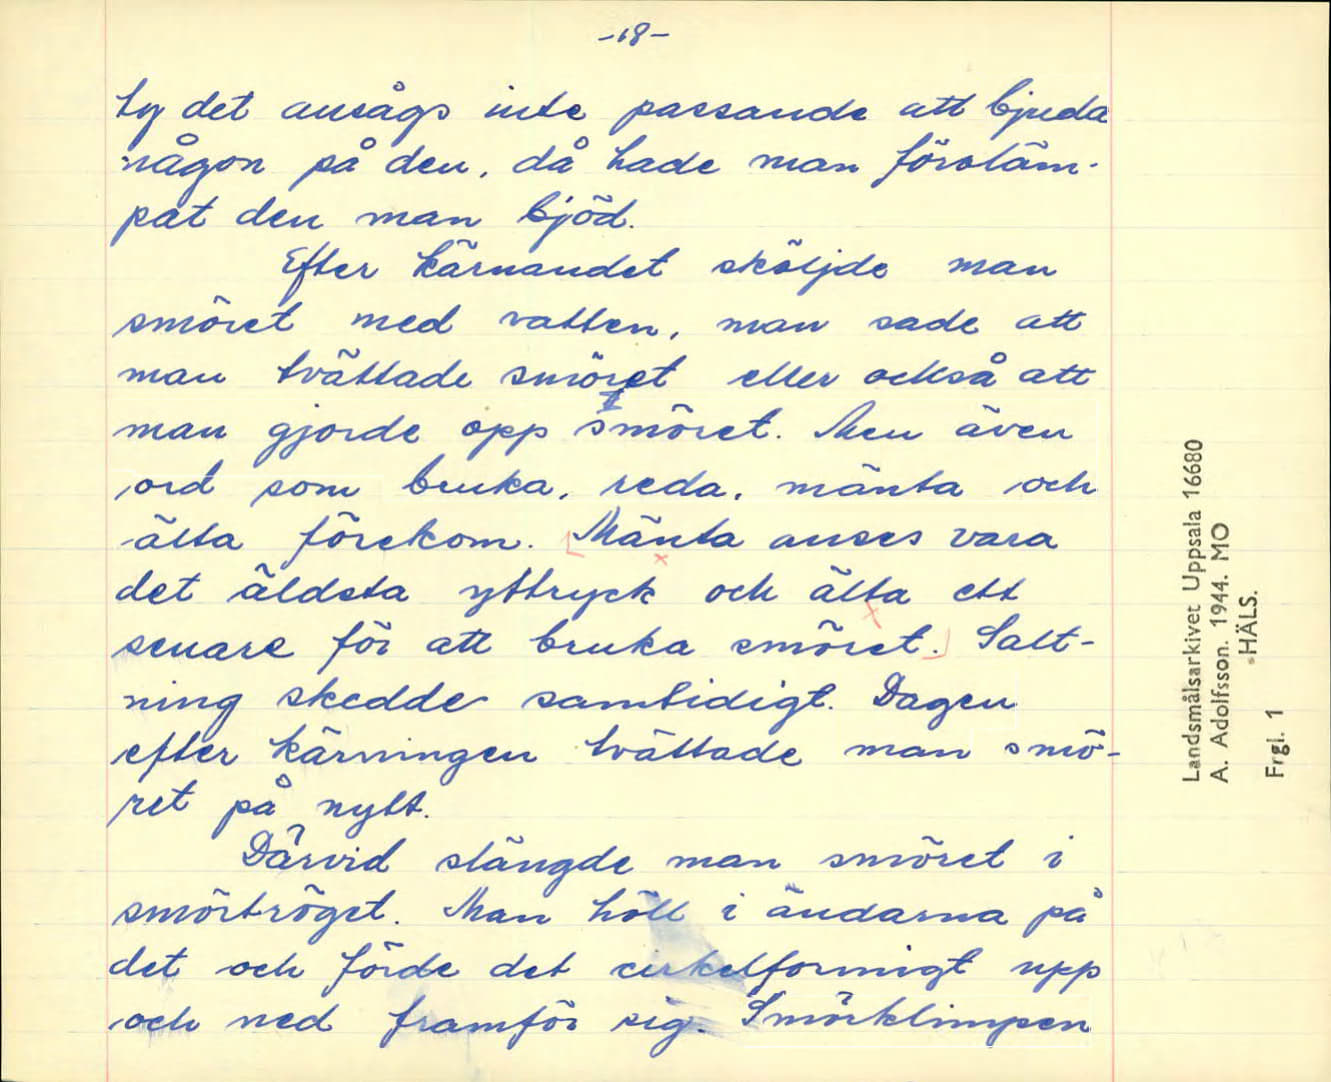 -18-
ty det ansågs inte passande att bjuda
någon på den, då hade man föroläm-
pat den man bjöd.
Efter kärnandet sköljde man
smöret med vatten, man sade att
man tvättade smöret eller också att
man gjorde opp smöret. Men även
ord som bruka, reda, mänta och
älta förekom. Mänta anses vara
det äldsta yttryck och älta ett
senare för att bruka smöret. Salt-
ning skedde samtidigt. Dagen
efter kärningen tvättade man smö-
ret på nytt.
Därvid slängde man smöret i
smörtröget. Man höll i ändarna på
det och förde det cirkelformigt upp
och ned framför sig. Smörklimpen
Landsmålsarkivet Uppsala 16680
A. Adolfsson. 1944. MO
HÄLS.
Frgl. 1